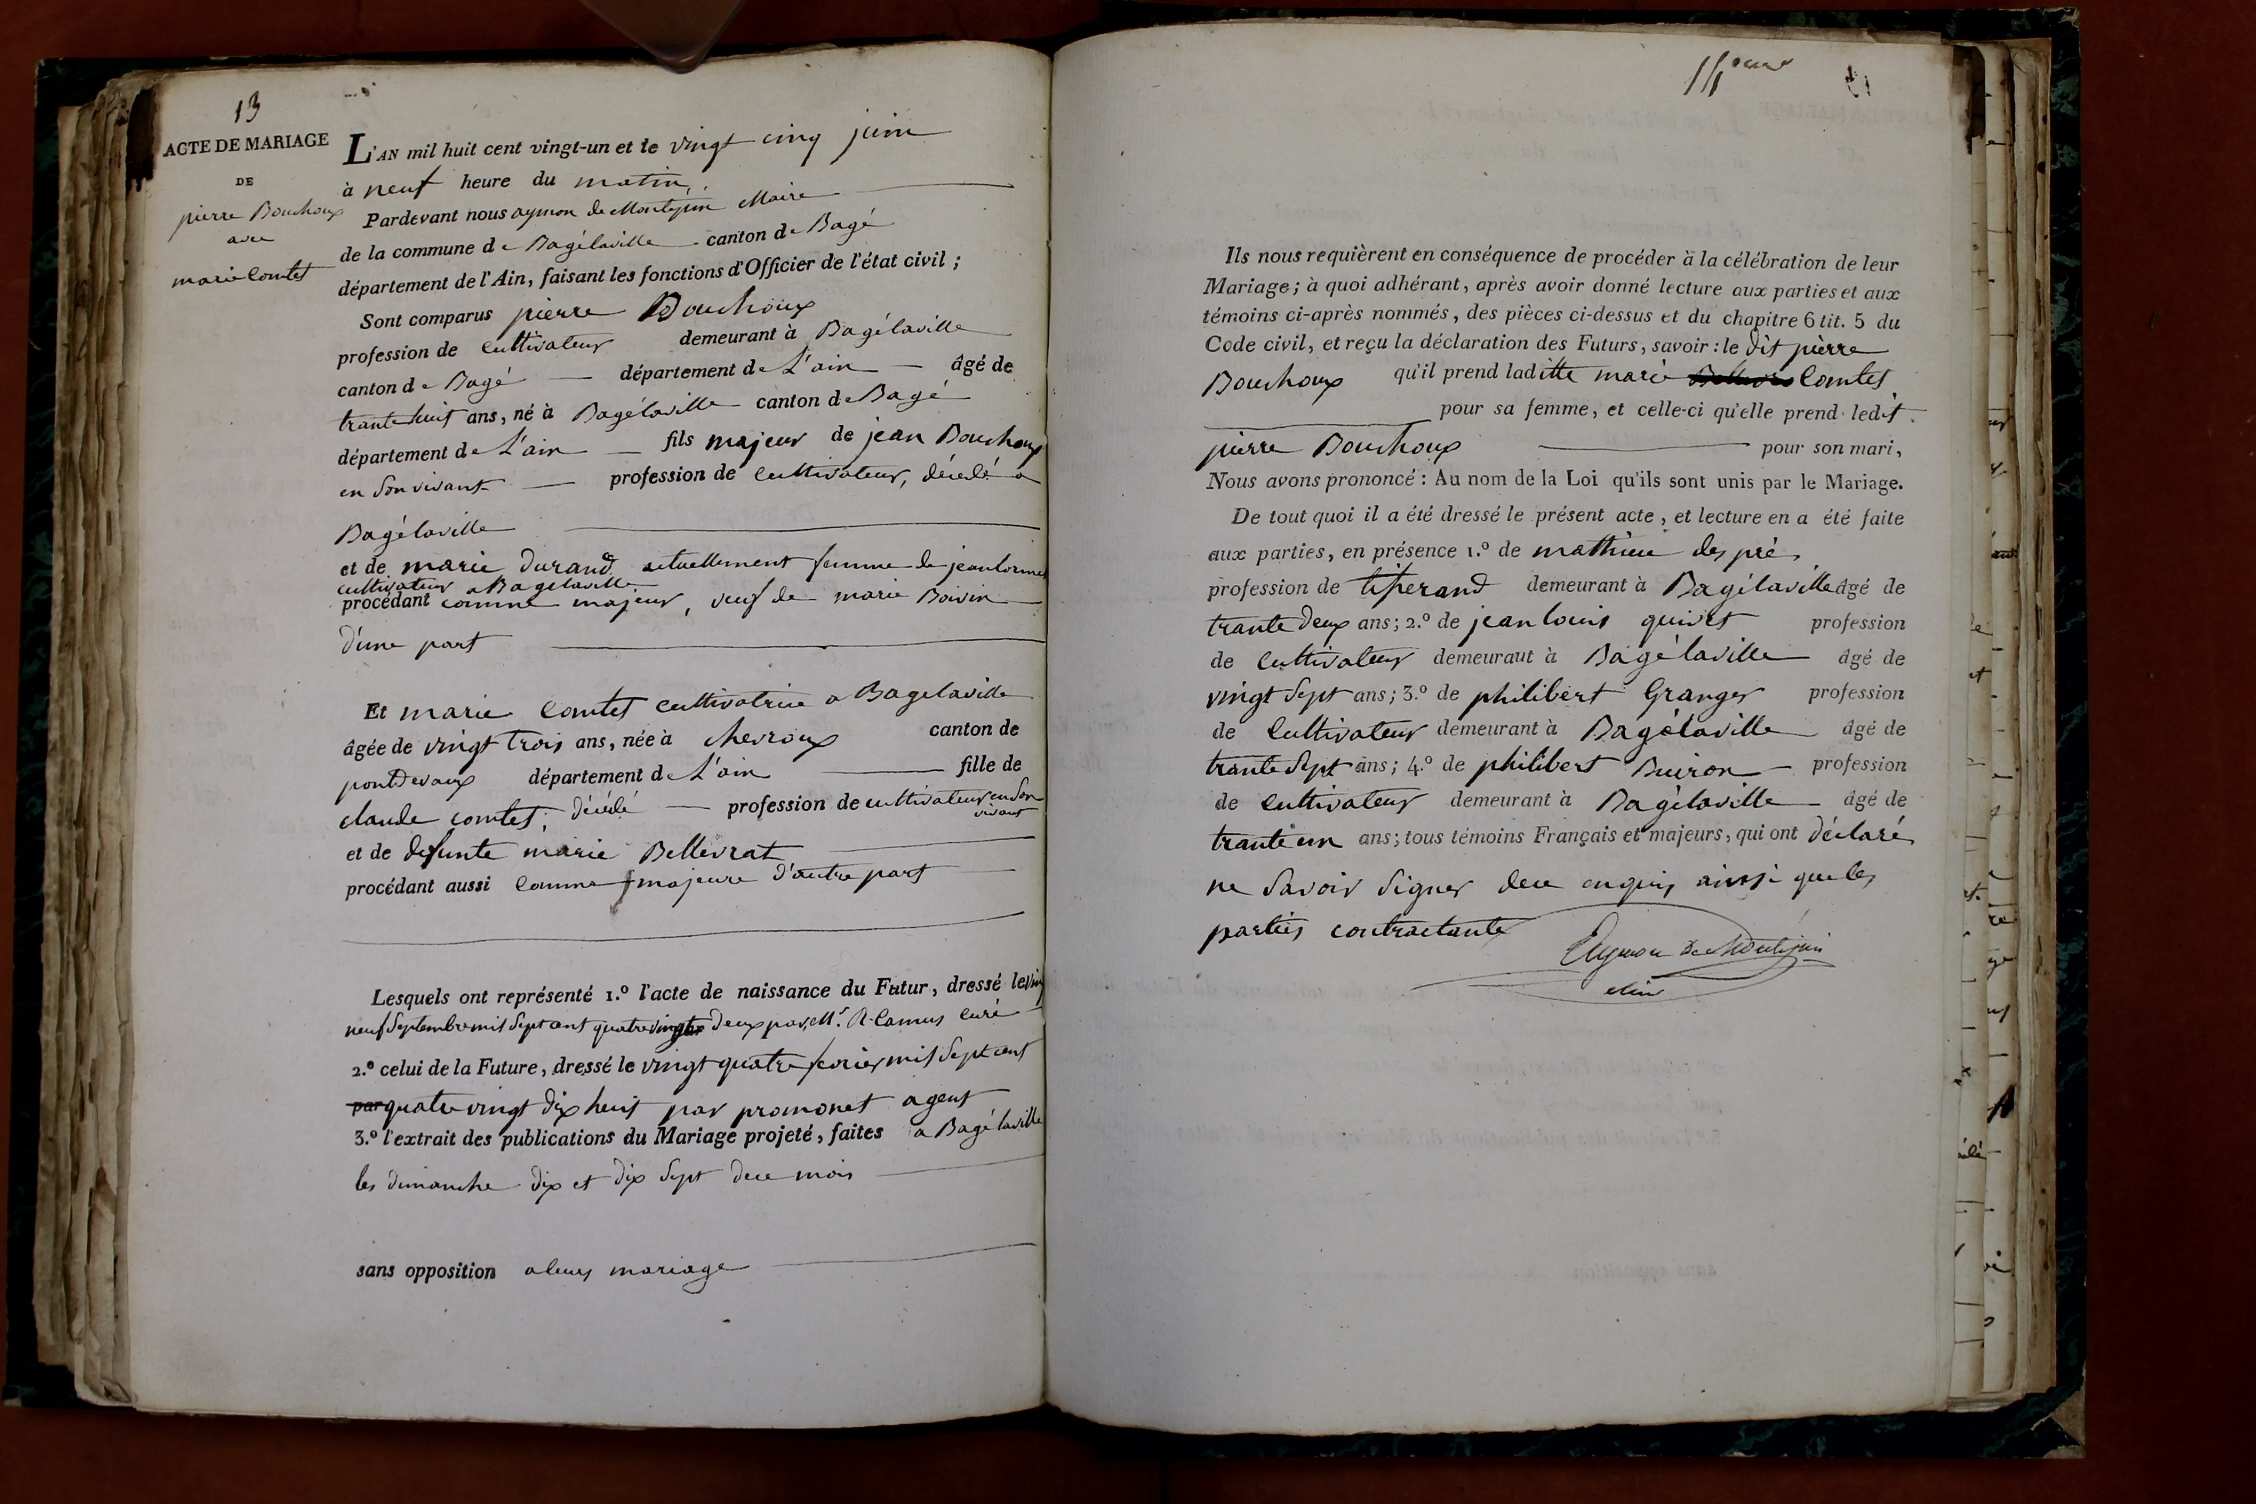 13
ACTE DE MARIAGE
DE
pierre Bouchoux
avec
marie Comtet
L'AN mil huit cent vingt-un et le vingt cinq juin
à neuf heure du matin,
Pardevant nous aymon de Montépin Maire
de la commune de Bagélaville canton de Bagé
département de l'Ain, faisant les fonctions d'Officier de l'état civil ;
Sont comparus pierre Bouchoux
profession de cultivateur demeurant à Bagélaville
canton de Bagé département de L'ain âgé de
trante huit ans, né à Bagélaville canton de Bagé
département de L'ain fils majeur de jean Bouchoux
en son vivant profession de cultivateur, décédé a
Bagélaville
et de marie durand actuellement femme de jean
cultivateur a Bagelaville
procédant comme majeur, veuf de marie Boivin
d'une part
Et marie Comtet cultivatrice a Bagelaville
âgée de vingt trois ans, née à chevroux canton de
pontdevaux département de L'ain fille de
claude comtet, décédé profession de cultivateur en son
vivant
et de defunte marie Bellevrat
procédant aussi comme majeure d'autre part
Lesquels ont représenté 1.º l'acte de naissance du Futur, dressé le vingt
neuf Septembre mil Sept cent quatre vingt deux par Mr. R. Camus curé
2.º celui de la Future, dressé le vingt quatre fevrier mil Sept cent
par quatre vingt dix huit par promonet agent
3.º l'extrait des publications du Mariage projeté, faites a Bagélaville
les dimanche dix et dix Sept de ce mois
sans opposition a leur mariage
Ils nous requièrent en conséquence de procéder à la célébration de leur
Mariage ; à quoi adhérant, après avoir donné lecture aux parties et aux
témoins ci-après nommés, des pièces ci-dessus et du chapitre 6 tit. 5 du
Code civil, et reçu la déclaration des Futurs, savoir : le dit pierre
Bouchoux qu'il prend laditte marie Comtet
pour sa femme, et celle-ci qu'elle prend ledit
pierre Bouchoux pour son mari,
Nous avons prononcé : Au nom de la Loi qu'ils sont unis par le Mariage.
De tout quoi il a été dressé le présent acte, et lecture en a été faite
aux parties, en présence 1.º de mathieu des pré,
profession de tisserand demeurant à Bagélaville âgé de
trante deux ans ; 2.º de jean louis quivet profession
de cultivateur demeuraut à Bagélaville âgé de
vingt Sept ans ; 3.º de philibert Granger profession
de cultivateur demeurant à Bagélaville âgé de
trante Sept ans ; 4.º de philibert Buiron profession
de cultivateur demeurant à Bagélaville âgé de
trante un ans ; tous témoins Français et majeurs, qui ont déclaré
ne Savoir Signer de ce enquis ainsi que les
parties contractante
Aymon de Montépin